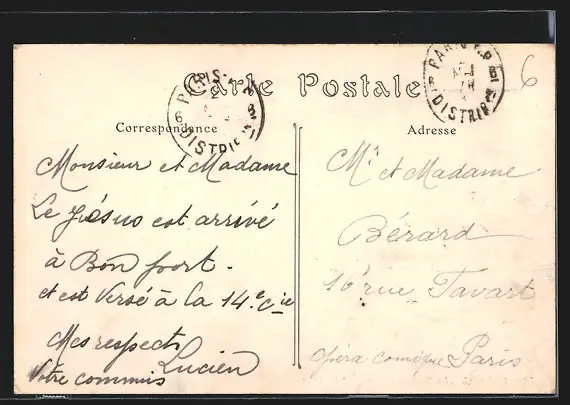 Carte Postale
PARIS
DISTRIB
PARIS R.P.
DISTRIB
6
Correspondance
Adresse
Monsieur et Madame
Le Jésus est arrivé
à Bon port.
et est versé à la 14.e Cie
Mes respects
Lucien
Votre commis
Mr et Madame
Bérard
16 rue Favart
opéra comique Paris